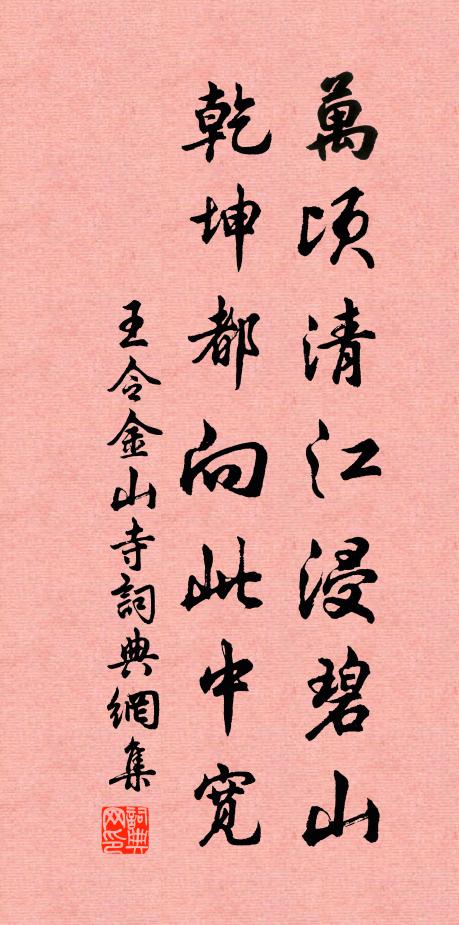 萬頃清江浸碧山
乾坤都向此中寬
王令金山寺詞典網集
詞典網印